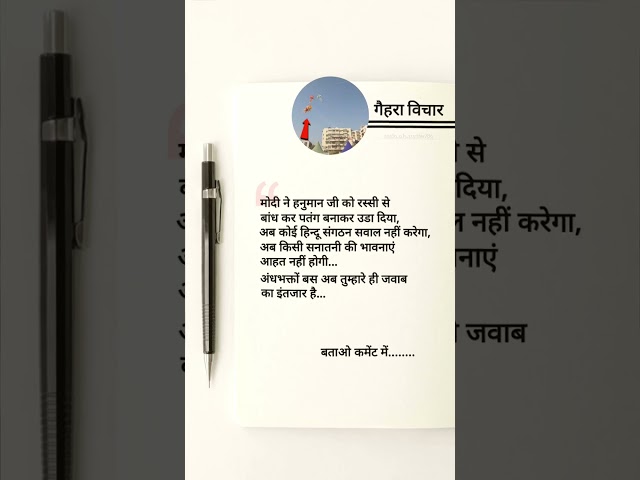 गैहरा विचार
मोदी ने हनुमान जी को रस्सी से
बांध कर पतंग बनाकर उडा दिया,
अब कोई हिन्दू संगठन सवाल नहीं करेगा,
अब किसी सनातनी की भावनाएं
आहत नहीं होगी...
अंधभक्तों बस अब तुम्हारे ही जवाब
का इंतजार है...
बताओ कमेंट में........